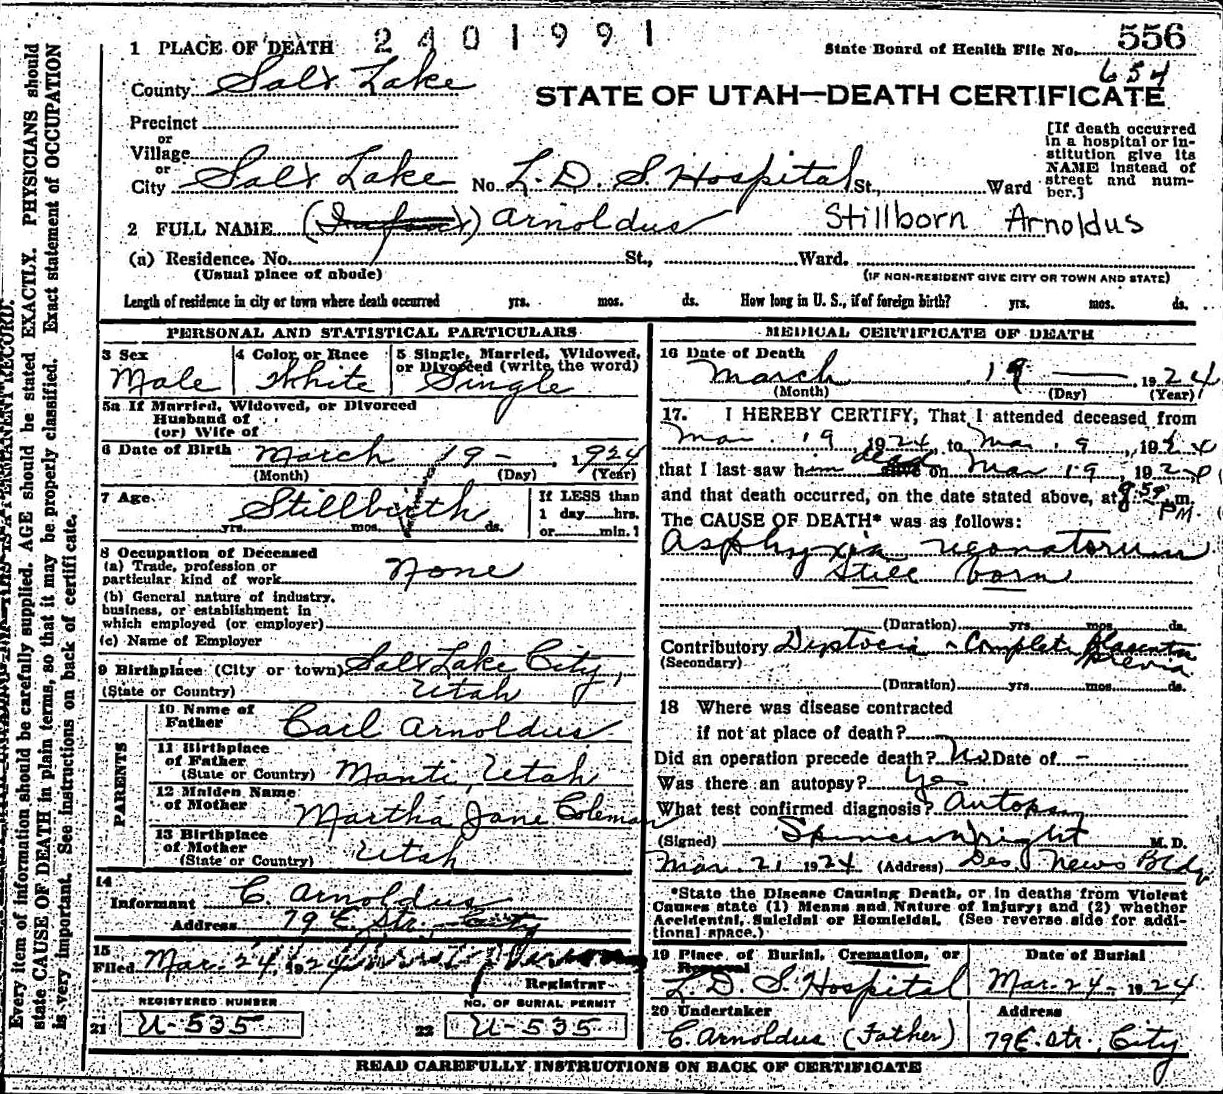 2401991
1 PLACE OF DEATH
State Board of Health File No. 556
654
County Salt Lake
STATE OF UTAH—DEATH CERTIFICATE
Precinct
or
Village
or
City Salt Lake No. L. D. S. Hospital St., Ward
[If death occurred
in a hospital or in-
stitution give its
NAME instead of
street and num-
ber.]
2 FULL NAME (Infant) Arnoldus Stillborn Arnoldus
(a) Residence. No. St., Ward.
(Usual place of abode) (IF NON-RESIDENT GIVE CITY OR TOWN AND STATE)
Length of residence in city or town where death occurred yrs. mos. ds. How long in U. S., if of foreign birth? yrs. mos. ds.
PERSONAL AND STATISTICAL PARTICULARS
3 Sex 4 Color or Race 5 Single, Married, Widowed,
or Divorced (write the word)
Male White Single
5a If Married, Widowed, or Divorced
Husband of
(or) Wife of
6 Date of Birth March 19 - 1924
(Month) (Day) (Year)
7 Age Stillbirth
yrs. mos. ds.
If LESS than
1 day hrs.
or min. ?
8 Occupation of Deceased
(a) Trade, profession or
particular kind of work None
(b) General nature of industry,
business, or establishment in
which employed (or employer)
(c) Name of Employer
9 Birthplace (City or town) Salt Lake City,
(State or Country) Utah
PARENTS
10 Name of
Father Carl Arnoldus
11 Birthplace
of Father
(State or Country) Manti, Utah
12 Maiden Name
of Mother Martha Jane Coleman
13 Birthplace
of Mother
(State or Country) Utah
14
Informant C. Arnoldus
Address 79 E. Str., City
15
Filed Mar. 24, 1924
Registrar
REGISTERED NUMBER
21 U-535
NO. OF BURIAL PERMIT
22 U-535
MEDICAL CERTIFICATE OF DEATH
16 Date of Death
March 19 — 1924
(Month) (Day) (Year)
17. I HEREBY CERTIFY, That I attended deceased from
Mar. 19 1924 to Mar. 19, 1924
that I last saw him dead alive on Mar 19 1924
and that death occurred, on the date stated above, at 8:59 m.
PM.
The CAUSE OF DEATH* was as follows:
Asphyxia neonatorum
Still born
(Duration) yrs. mos. ds.
Contributory Dystocia - Complete Placenta
(Secondary) previa
(Duration) yrs. mos. ds.
18 Where was disease contracted
if not at place of death?
Did an operation precede death? No Date of -
Was there an autopsy? Yes
What test confirmed diagnosis? Autopsy
(Signed) Spencer Wright M. D.
Mar. 21 1924 (Address) Des. News Bldg
*State the Disease Causing Death, or in deaths from Violent
Causes state (1) Means and Nature of Injury; and (2) whether
Accidental, Suicidal or Homicidal. (See reverse side for addi-
tional space.)
19 Place of Burial, Cremation, or
Removal
L. D. S. Hospital
Date of Burial
Mar. 24 - 1924
20 Undertaker
C. Arnoldus (Father)
Address
79 E. Str., City
READ CAREFULLY INSTRUCTIONS ON BACK OF CERTIFICATE
Every item of information should be carefully supplied. AGE should be stated EXACTLY. PHYSICIANS should
state CAUSE OF DEATH in plain terms, so that it may be properly classified. Exact statement of OCCUPATION
is very important. See instructions on back of certificate.